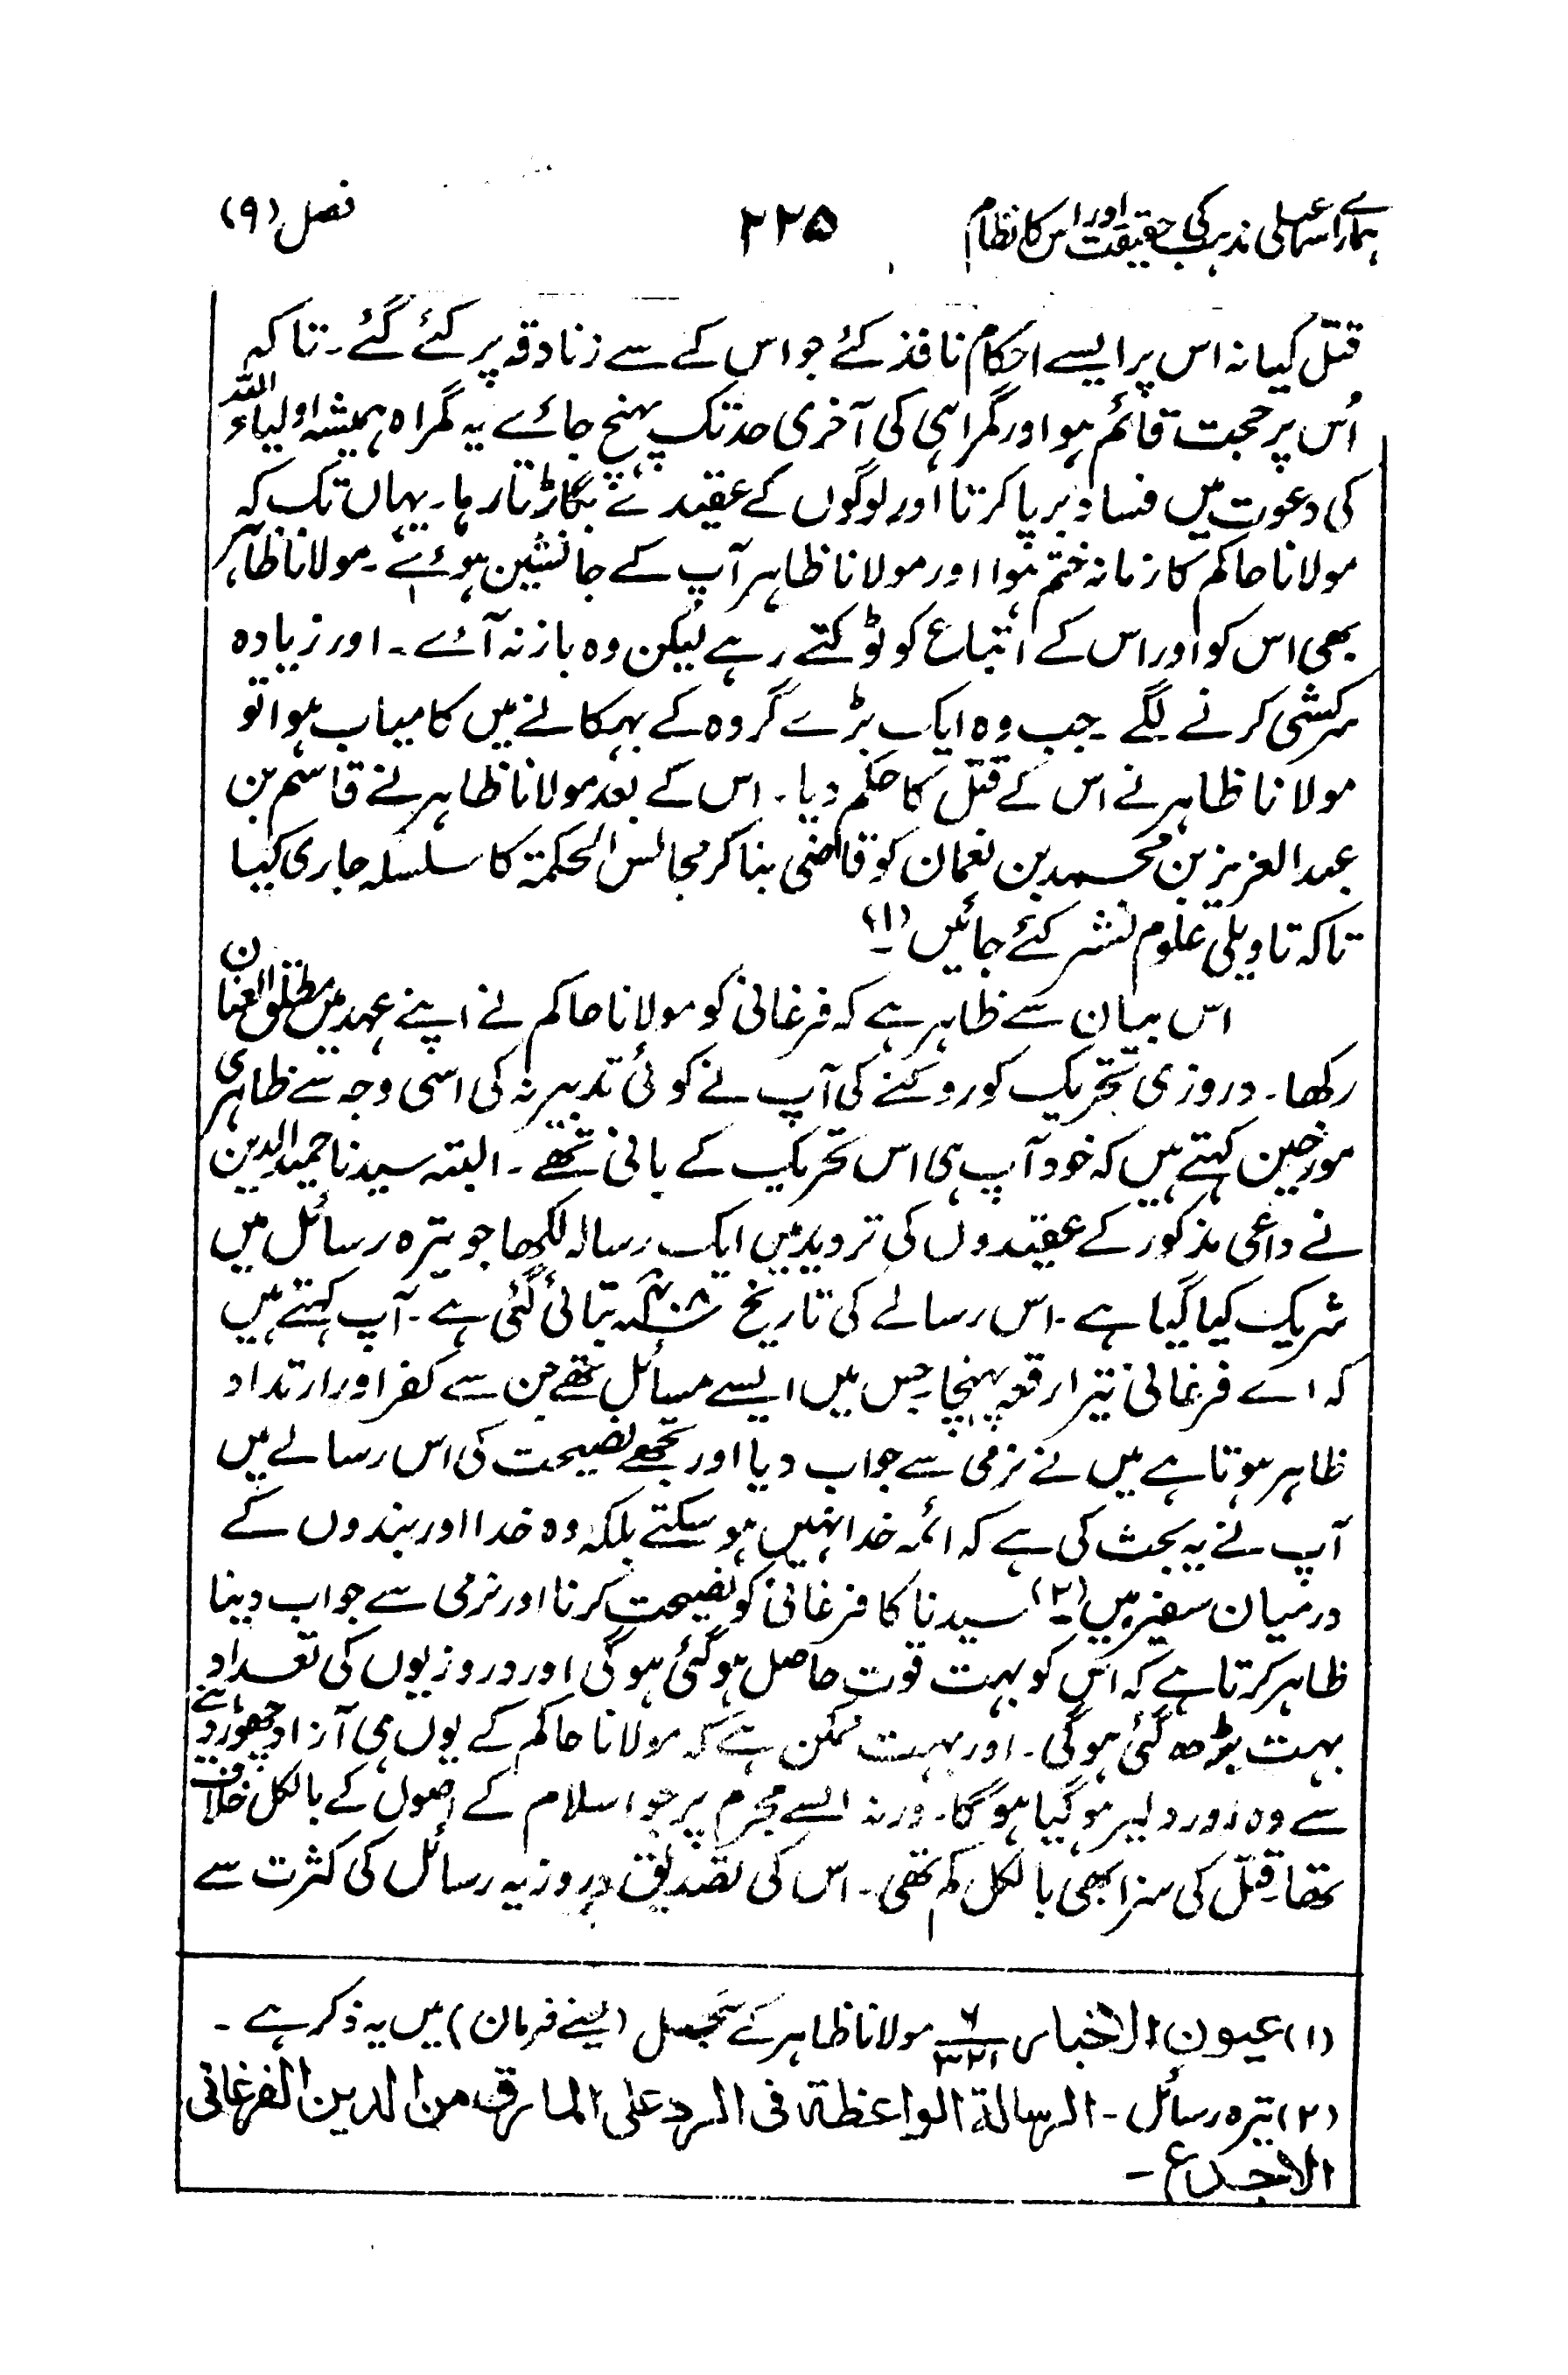 ہمارے اسماعیلی مذہب کی حقیقت اور اس کا نظام ۲۲۵ فصل (۹)
قتل کیا نہ اس پر ایسے احکام نافذ کئے جو اس کے سے زنادقہ پر کئے گئے۔ تاکہ
اُس پر حجت قائم ہو اور گمراہی کی آخری حد تک پہنچ جائے یہ گمراہ ہمیشہ اولیاء اللہ
کی دعوت میں فساد برپا کرتا اور لوگوں کے عقیدے بگاڑتا رہا۔ یہاں تک کہ
مولانا حاکم کا زمانہ ختم ہوا اور مولانا ظاہر آپ کے جانشین ہوئے۔ مولانا ظاہر
بھی اس کو اور اس کے اتباع کو ٹوکتے رہے لیکن وہ باز نہ آئے۔ اور زیادہ
سرکشی کرنے لگے۔ جب وہ ایک بڑے گروہ کے بہکانے میں کامیاب ہوا تو
مولانا ظاہر نے اس کے قتل کا حکم دیا۔ اس کے بعد مولانا ظاہر نے قاسم بن
عبد العزیز بن محمد بن نعمان کو قاضی بنا کر مجالس الحکمۃ کا سلسلہ جاری کیا
تاکہ تاویلی علوم نشر کئے جائیں (۱)۔
اس بیان سے ظاہر ہے کہ فرغانی کو مولانا حاکم نے اپنے عہد میں مطلق العنان
رکھا۔ دروزی تحریک کو روکنے کی آپ نے کوئی تدبیر نہ کی اسی وجہ سے ظاہری
مورخین کہتے ہیں کہ خود آپ ہی اس تحریک کے بانی تھے۔ البتہ سیدنا حمید الدین
نے داعی مذکور کے عقیدوں کی تردید میں ایک رسالہ لکھا جو تیرہ رسائل میں
شریک کیا گیا ہے۔ اس رسالے کی تاریخ ۴۰۸ھ بتائی گئی ہے۔ آپ کہتے ہیں
کہ اے فرغانی تیرا رقعہ پہنچا جس میں ایسے مسائل تھے جن سے کفر اور ارتداد
ظاہر ہوتا ہے میں نے نرمی سے جواب دیا اور تجھے نصیحت کی اس رسالے میں
آپ نے یہ بحث کی ہے کہ ائمہ خدا نہیں ہو سکتے بلکہ وہ خدا اور بندوں کے
درمیان سفیر ہیں (۲)۔ سیدنا کا فرغانی کو نصیحت کرنا اور نرمی سے جواب دینا
ظاہر کرتا ہے کہ اس کو بہت قوت حاصل ہو گئی ہوگی اور دروزیوں کی تعداد
بہت بڑھ گئی ہوگی۔ اور بہت ممکن ہے کہ مولانا حاکم کے یوں ہی آزاد چھوڑ دینے
سے وہ اور دلیر ہو گیا ہوگا۔ ورنہ ایسے مجرم پر جو اسلام کے اصول کے بالکل خلاف
تھا قتل کی سزا بھی بالکل کم تھی۔ اس کی تصدیق دروزیہ رسائل کی کثرت سے
(۱) عیون الاخبار ۶/۳۲۱ مولانا ظاہر کے سجل (یعنے فرمان) میں یہ ذکر ہے۔
(۲) تیرہ رسائل۔ الرسالۃ الواعظۃ فی الرد علی المارق من الدین الفرغانی
الاجدع۔